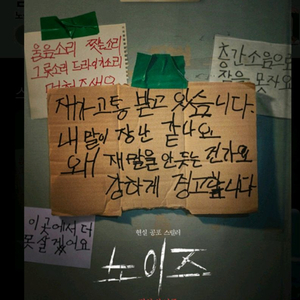 울음소리 쫓는소리
그릇소리 드라이기소리
층간소음으로
잠을 못자요
제가 고통 받고 있습니다.
내 말이 장난 같나요
왜 제 말을 안 듣는 건가요
강하게 경고합니다
이곳에서 더
못 살겠어요
현실 공포 스릴러
노이즈